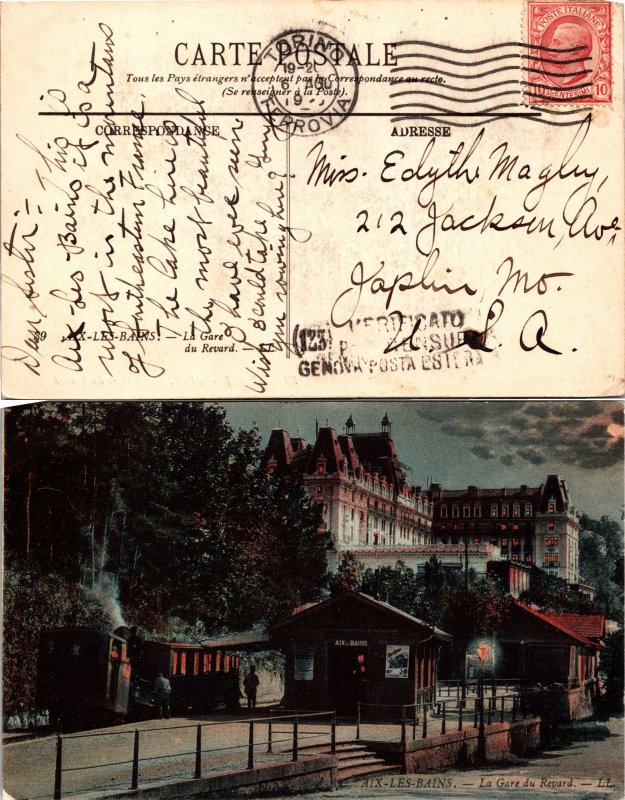 CARTE POSTALE
Tous les Pays étrangers n'acceptent pas la Correspondance au recto.
(Se renseigner à la Poste).
CORRESPONDANCE
ADRESSE
TORINO
19-20
6 AGO
19
FERROVIA
POSTE ITALIANE
10
CENTESIMI
10
Dear Sister:- This is
Aix-les Bains it is a
resort in the mountains
of Southeastern France.
The lake here is
the most beautiful
I have ever seen
Wish I could take you
on rowing here
Miss. Edythe Magley,
212 Jackson, Ave,
Joplin, Mo.
U.S.A.
VERIFICATO
(123)
GENOVA POSTA ESTERA
39 AIX-LES-BAINS. - La Gare
du Revard. - LL
AIX-les-BAINS
AIX-LES-BAINS. - La Gare du Revard. - LL.